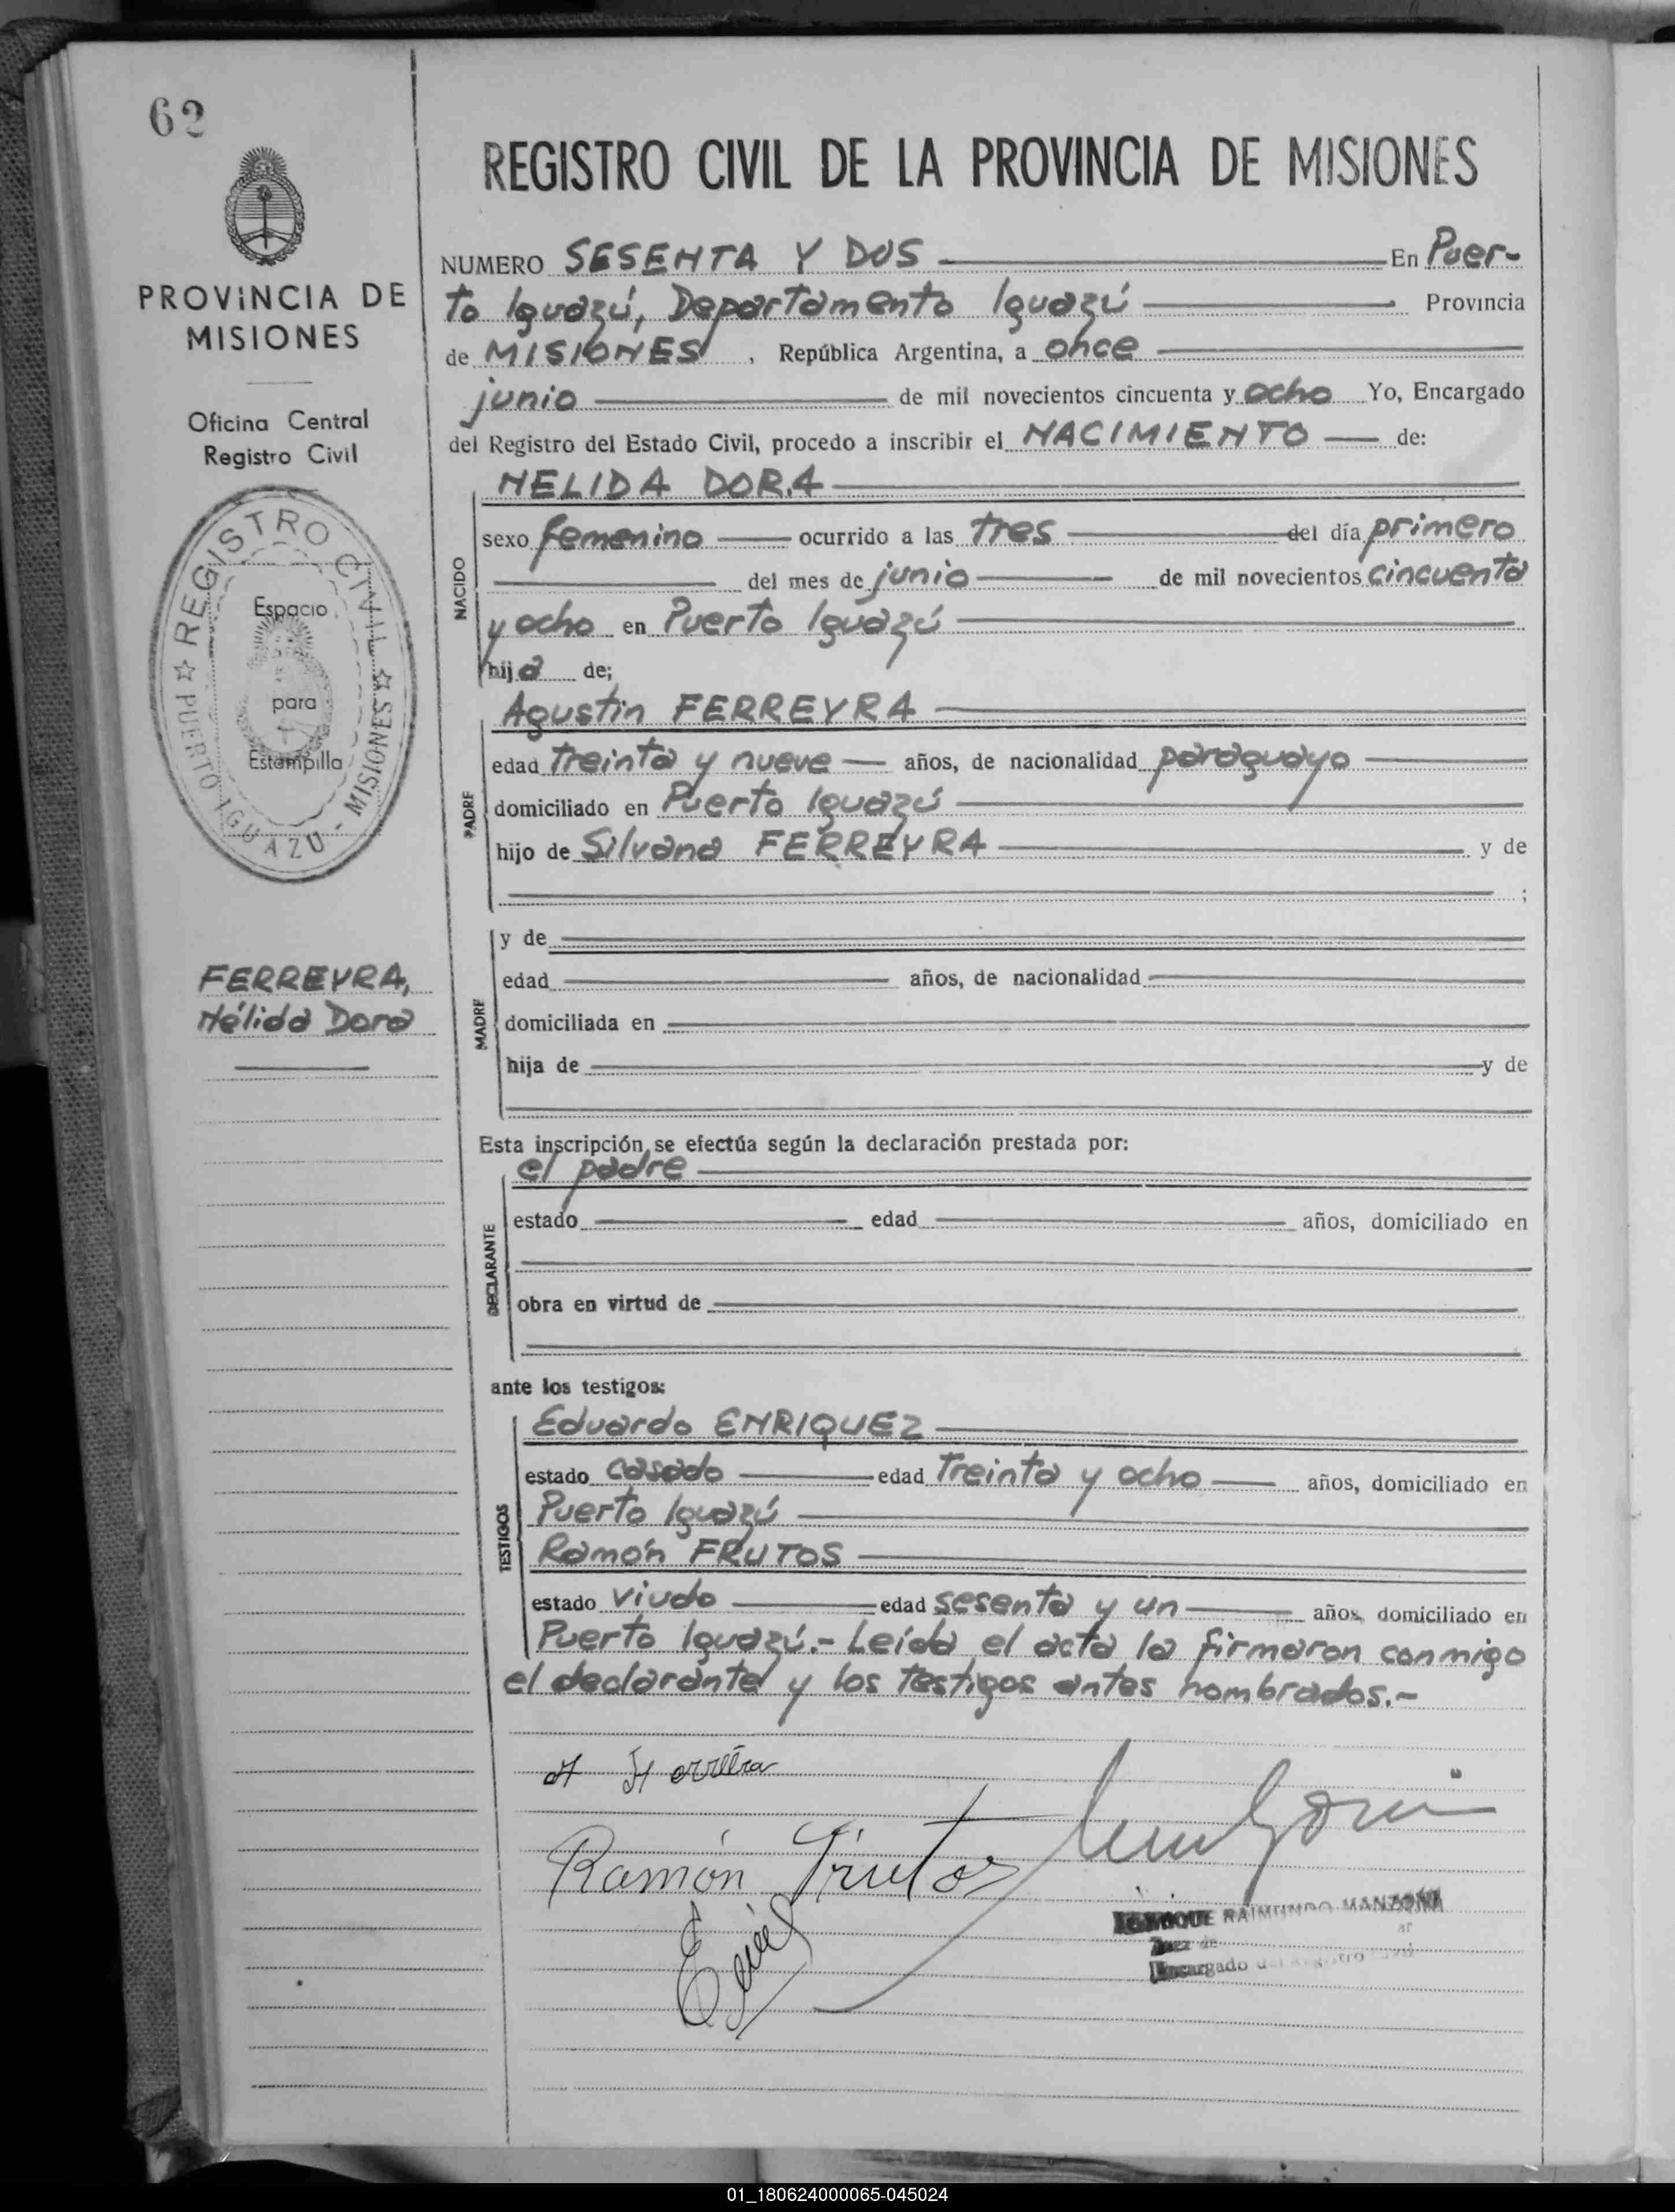 62
PROVINCIA DE
MISIONES
Oficina Central
Registro Civil
REGISTRO CIVIL
PUERTO IGUAZU - MISIONES
Espacio
para
Estampilla
FERREYRA,
Nélida Dora
REGISTRO CIVIL DE LA PROVINCIA DE MISIONES
NUMERO SESENTA Y DOS En Puer-
to Iguazú, Departamento Iguazú Provincia
de MISIONES, República Argentina, a once
junio de mil novecientos cincuenta y ocho Yo, Encargado
del Registro del Estado Civil, procedo a inscribir el NACIMIENTO de:
NACIDO
NELIDA DORA
sexo femenino ocurrido a las tres del día primero
del mes de junio de mil novecientos cincuenta
y ocho en Puerto Iguazú
hija de;
PADRE
Agustín FERREYRA
edad treinta y nueve años, de nacionalidad paraguayo
domiciliado en Puerto Iguazú
hijo de Silvana FERREYRA y de
;
MADRE
y de
edad años, de nacionalidad
domiciliada en
hija de y de
Esta inscripción se efectúa según la declaración prestada por:
DECLARANTE
el padre
estado edad años, domiciliado en
obra en virtud de
ante los testigos:
TESTIGOS
Eduardo ENRIQUEZ
estado casado edad treinta y ocho años, domiciliado en
Puerto Iguazú
Ramón FRUTOS
estado viudo edad sesenta y un años, domiciliado en
Puerto Iguazú.- Leída el acta la firmaron conmigo
el declarante y los testigos antes nombrados.-
Ramón Frutos
RAIMUNDO MANZONI
Juez de
Encargado del Registro Civil
01_180624000065-045024